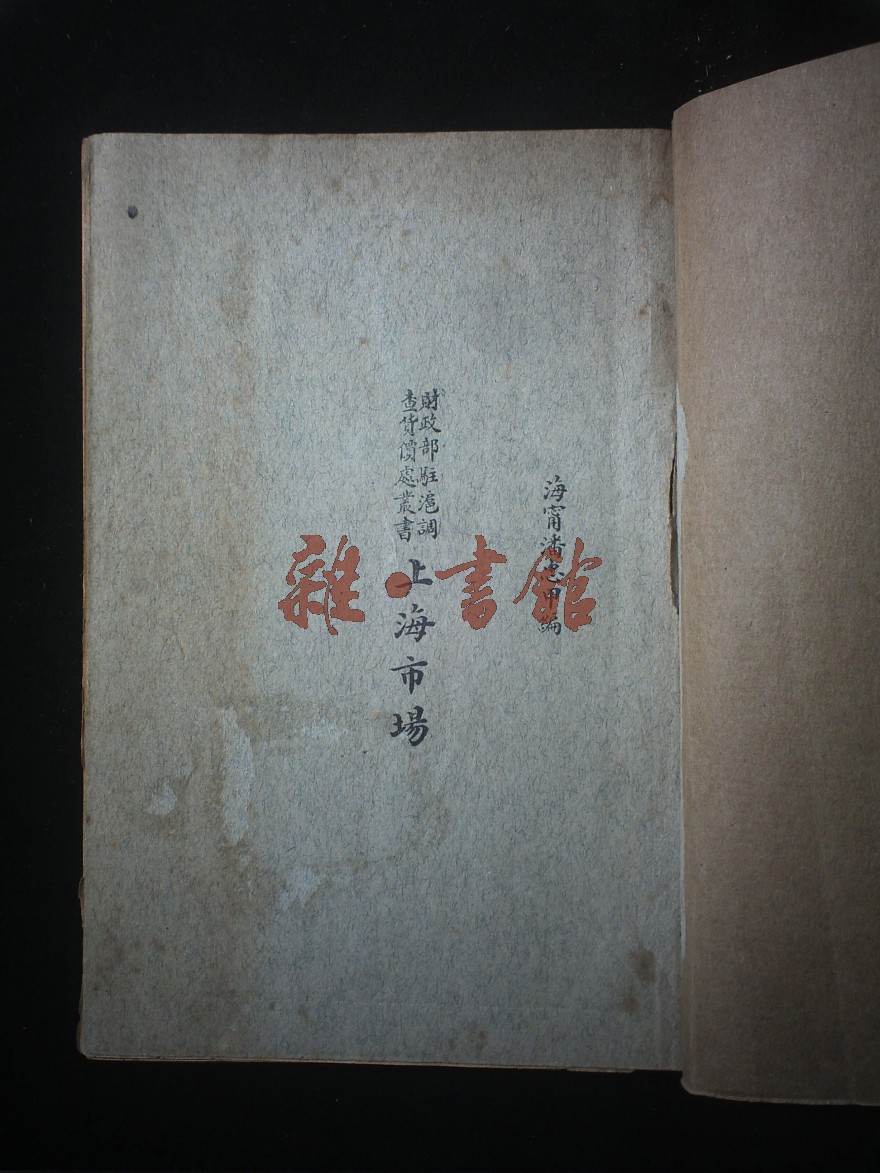 海甯潘忠甲編
財政部駐滬調
查貨價處叢書
上海市場
雜•書館